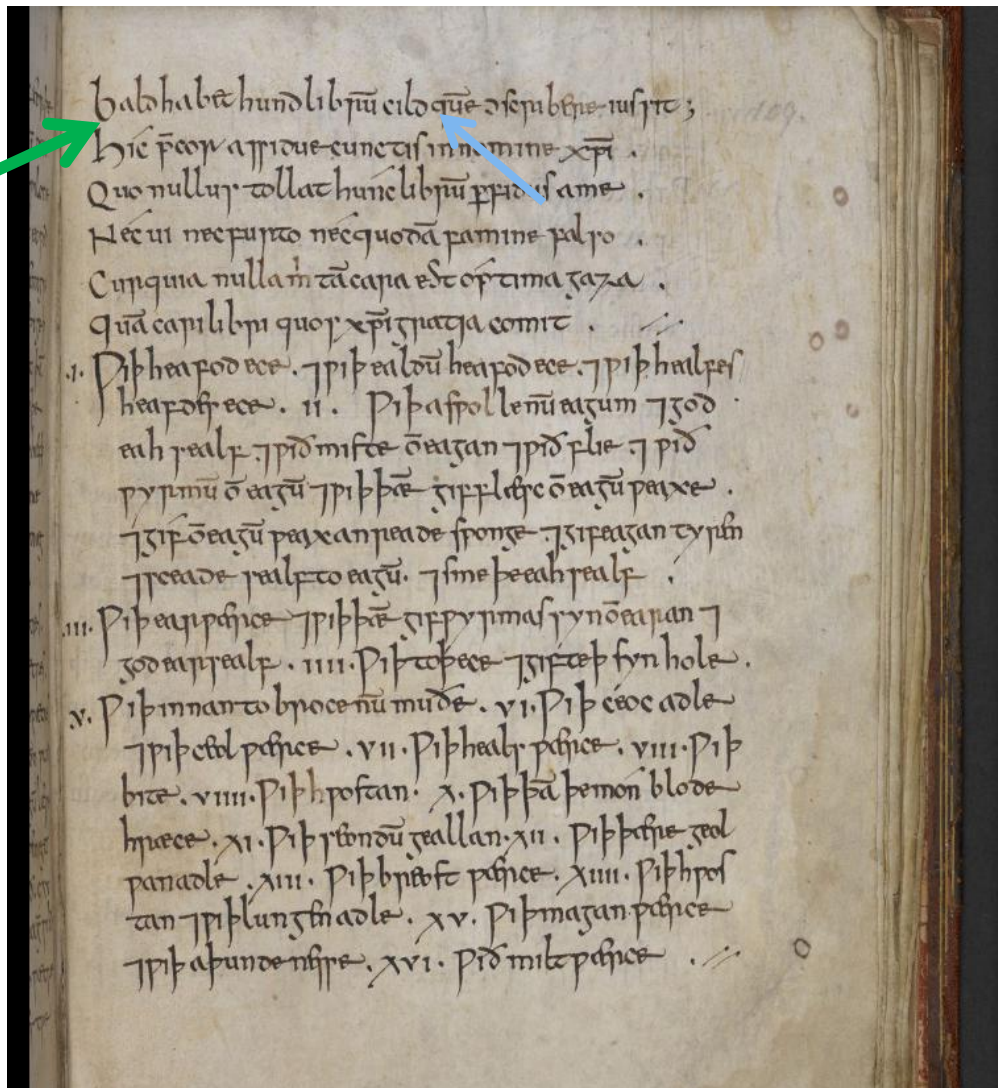 bald habet hunc librū cild quē cscribere iussit ;
Hic p̄cor assidue cunctis in nomine xp̄i .
Quo nullus tollat hunc librū ꝑfidus a me .
Nec ui nec furto nec quodā famine falso .
Cur quia nulla m̍ tā cara est optima gaza .
Quā cari libri quos xp̄i gratia comit .
.i. Ƿiþ heafod ece . ⁊ ƿiþ ealdū heafod ece . ⁊ ƿiþ healfes
heafdes ece . ii . Ƿiþ asƿollenū eagum ⁊ god
eah sealf . ⁊ ƿið miste ō eagan ⁊ ƿið flie . ⁊ ƿið
ƿyrmū ō eagū ⁊ ƿiþ þā gif flæsc ō eagū ƿeaxe .
⁊ gif ō eagū ƿeaxan reade sponge . ⁊ gif eagan tyren
⁊ sceade sealf to eagū . ⁊ smeþe eah sealf .
.iii. Ƿiþ earƿærce ⁊ ƿiþ þā gif ƿyrmas syn ō earan ⁊
god ear sealf . iiii . Ƿiþ toþece ⁊ gif teþ syn hole .
.v. Ƿiþ innan tobrocenū muðe . vi . Ƿiþ ceoc adle
⁊ ƿiþ ceol ƿærce . vii . Ƿiþ heals ƿærce . viii . Ƿiþ
bite . viiii . Ƿiþ hƿostan . x . Ƿiþ þā þe mon blode
hræce . xi . Ƿiþ seondū geallan . xii . Ƿiþ þære geol
ƿan adle . xiii . Ƿiþ breost ƿærce . xiiii . Ƿiþ hƿos
tan ⁊ ƿiþ lungen adle . xv . Ƿiþ magan ƿærce
⁊ ƿiþ aþundenesse . xvi . Ƿið milt ƿærce .